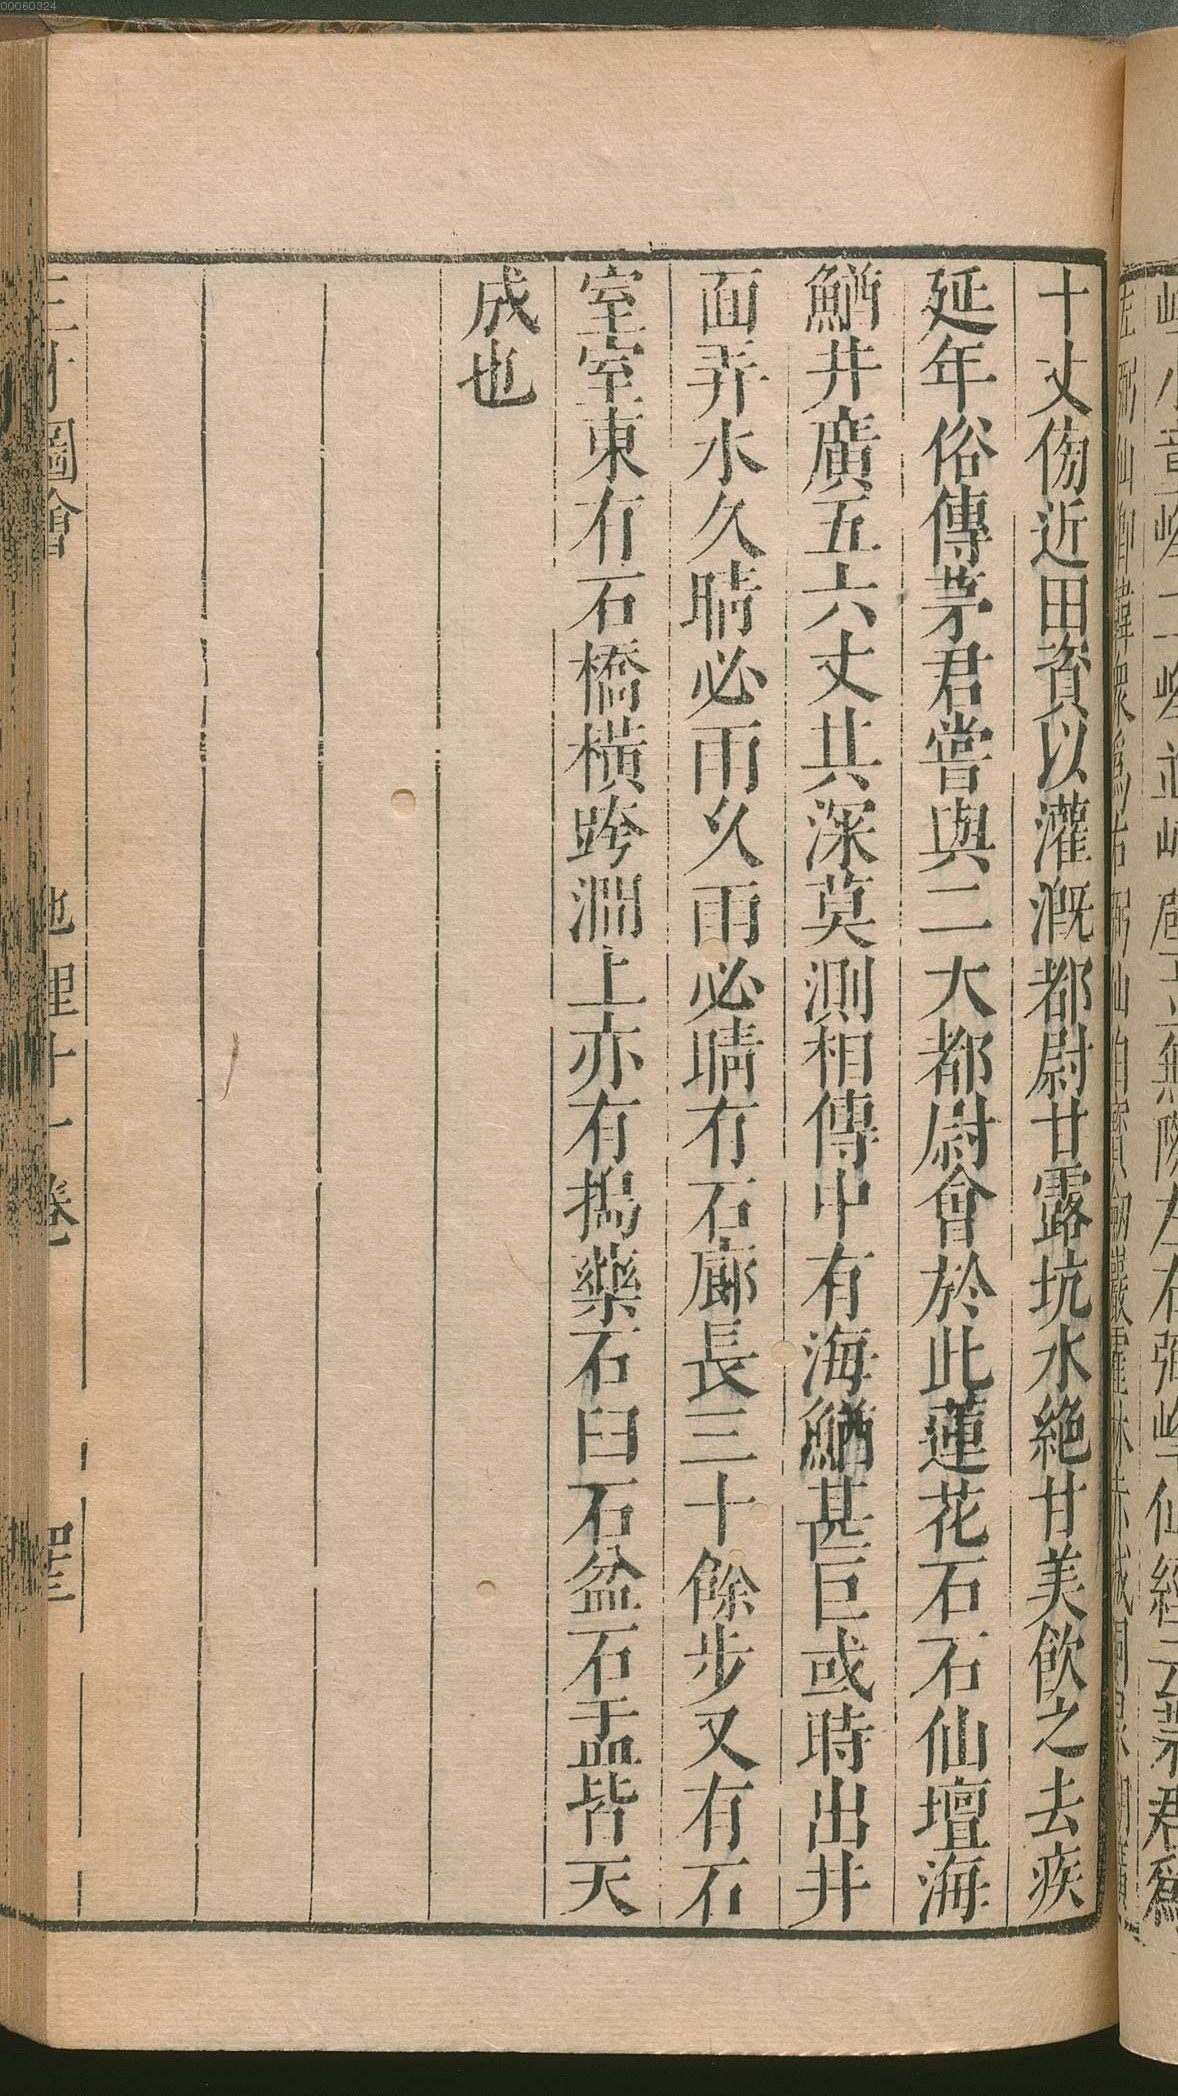 十丈傍近田資以灌溉都尉甘露坑水絶甘美飲之去疾
延年俗傳茅君嘗與二大都尉會於此蓮花石石仙壇海
鰌井廣五六丈其深莫測相傳中有海鰌甚巨或時出井
面弄水久晴必雨久雨必晴有石廊長三十餘步又有石
室室東有石橋橫跨澗上亦有搗藥石臼石盆石盂皆天
成也
圖會
理十一卷
00060324